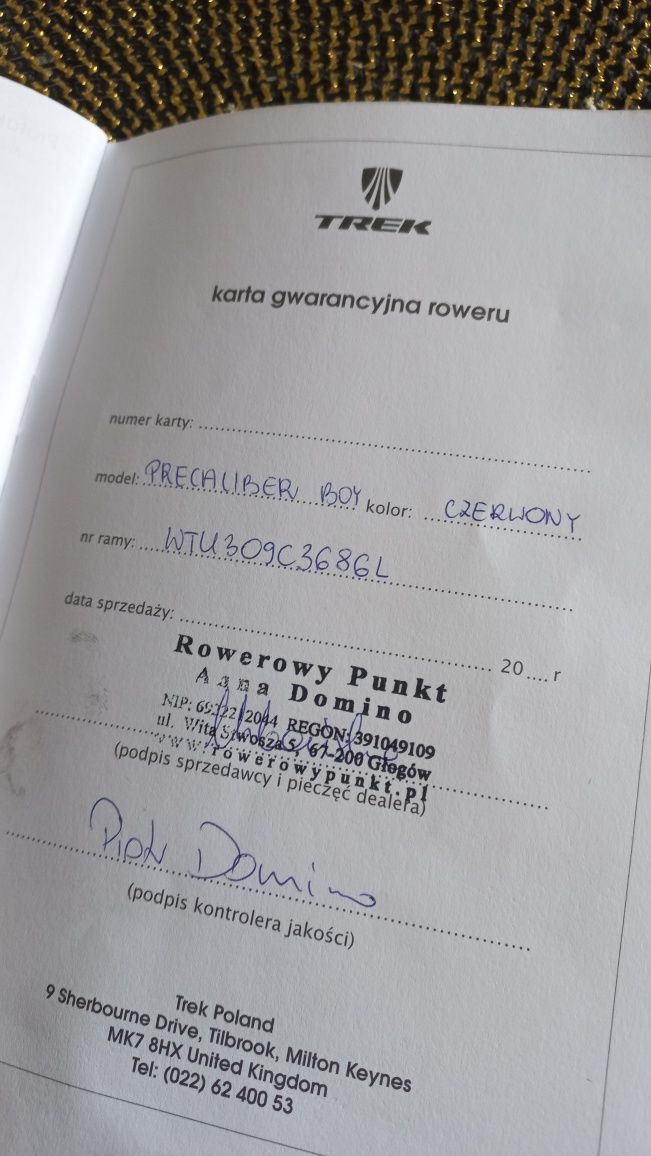 TREK
karta gwarancyjna roweru
numer karty:
model: PRECALIBER BOY kolor: CZERWONY
nr ramy: WTU309C3686L
data sprzedaży: 20.... r
Rowerowy Punkt
Anna Domino
NIP: REGON: 391049109
ul. Wita Stwosza 5, 67-200 Głogów
www.rowerowypunkt.pl
(podpis sprzedawcy i pieczęć dealera)
Piotr Domino
(podpis kontrolera jakości)
Trek Poland
9 Sherbourne Drive, Tilbrook, Milton Keynes
MK7 8HX United Kingdom
Tel: (022) 62 400 53